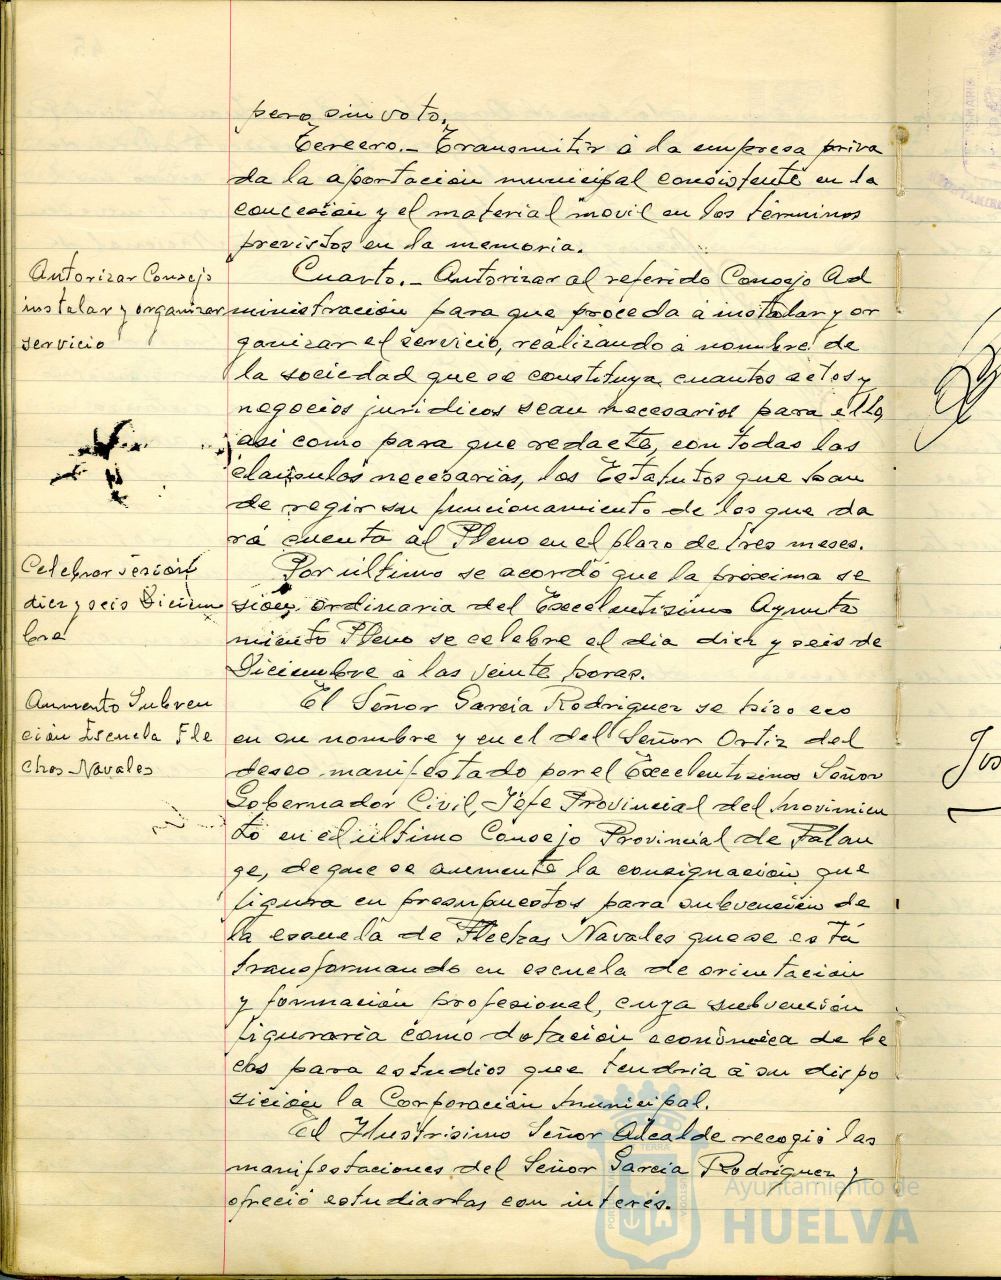 pero sin voto.
Tercero.- Transmitir á la empresa priva
da la aportación municipal consistente en la
concesión y el material móvil en los términos
previstos en la memoria.
Autorizar Consejo
instalar y organizar
servicio
Cuarto.- Autorizar al referido Consejo Ad
ministración para que proceda á instalar y or
ganizar el servicio, realizando á nombre de
la sociedad que se constituya cuantos actos y
negocios jurídicos sean necesarios para ello,
así como para que redacte, con todas las
claúsulas necesarias, los Estatutos que han
de regir su funcionamiento de los que da
rá cuenta al Pleno en el plazo de tres meses.
Celebrar sesión
diez y seis Diciem
bre
Por último se acordó que la próxima se
sión ordinaria del Excelentísimo Ayunta
miento Pleno se celebre el día diez y seis de
Diciembre á las veinte horas.
Aumento Subven
ción Escuela Fle
chas Navales
El Señor García Rodríguez se hizo eco
en su nombre y en el del Señor Ortiz del
deseo manifestado por el Excelentísimo Señor
Gobernador Civil, Jefe Provincial del Movimien
to en el último Consejo Provincial de Falan
ge, de que se aumente la consignación que
figura en presupuestos para subvención de
la escuela de Flechas Navales que se está
transformando en escuela de orientación
y formación profesional, cuya subvención
figuraría como dotación económica de be
cas para estudios que tendría á su dispo
sición la Corporación Municipal.
El Ilustrísimo Señor Alcalde recogió las
manifestaciones del Señor García Rodríguez y
ofreció estudiarlas con interés.
Ayuntamiento de
HUELVA